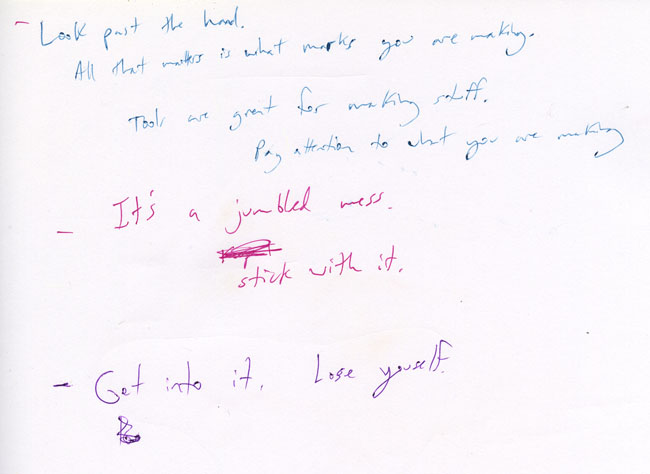 - Look past the hand.
All that matters is what marks you are making.
Tools are great for making stuff.
Pay attention to what you are making
- It's a jumbled mess.
stick with it.
- Get into it. Lose youself.